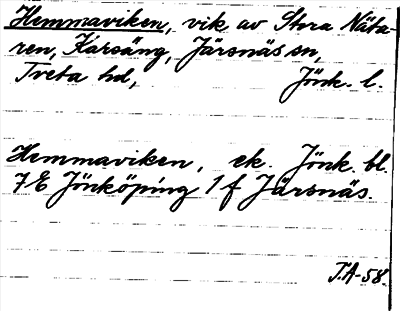 Hemmaviken, vik av Stora Näta-
ren, Karsäng, Järsnäs sn,
Tveta hd, Jönk. l.
Hemmaviken, ek. Jönk. bl.
7E Jönköping 1f Järsnäs.
T.A-58.